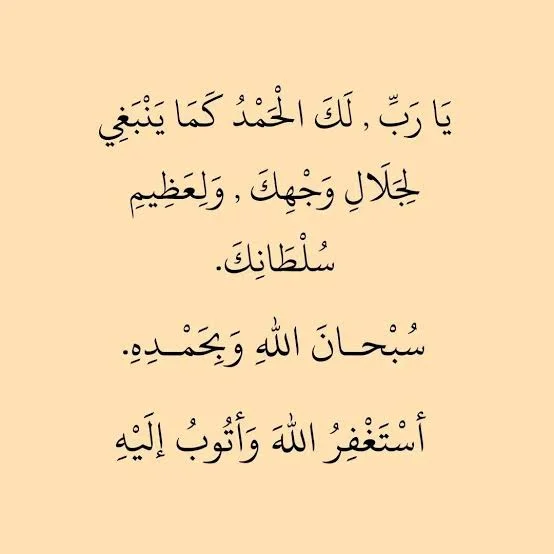 يَا رَبِّ , لَكَ الْحَمْدُ كَمَا يَنْبَغِي
لِجَلَالِ وَجْهِكَ , وَلِعَظِيمِ
سُلْطَانِكَ.
سُبْحـانَ اللهِ وَبِحَمْـدِهِ.
أسْتَغْفِرُ اللهَ وَأتُوبُ إلَيْهِ